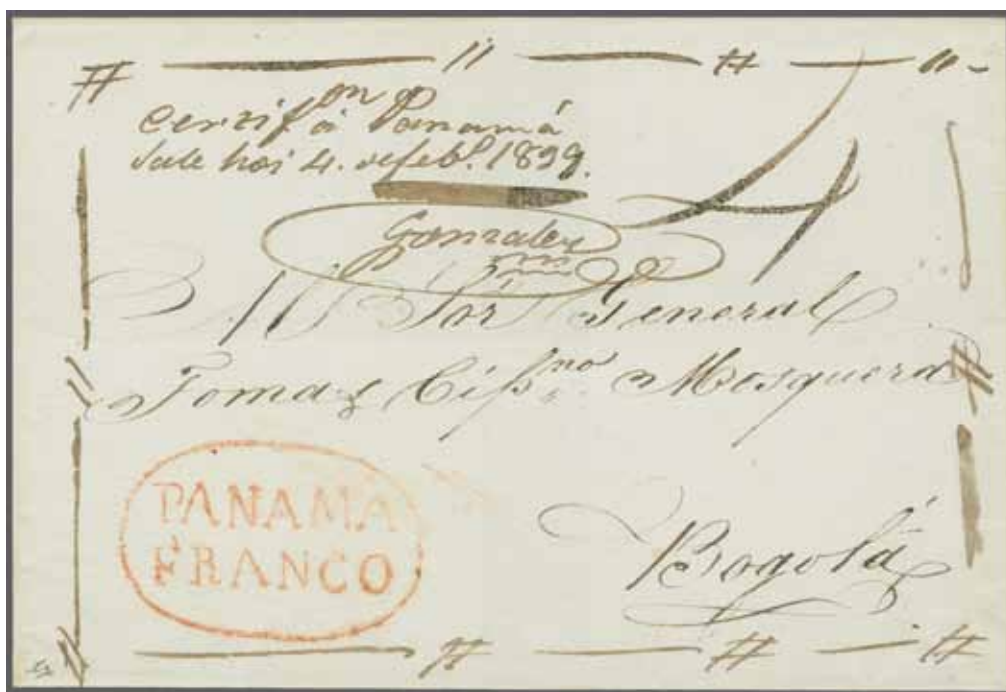 Certif.on a Panamá
Sale hoi 4. de feb.o 1839.
4
Gonzalez
Al Sor General
Tomas Cip.no Mosquera
PANAMA
FRANCO
Bogotá